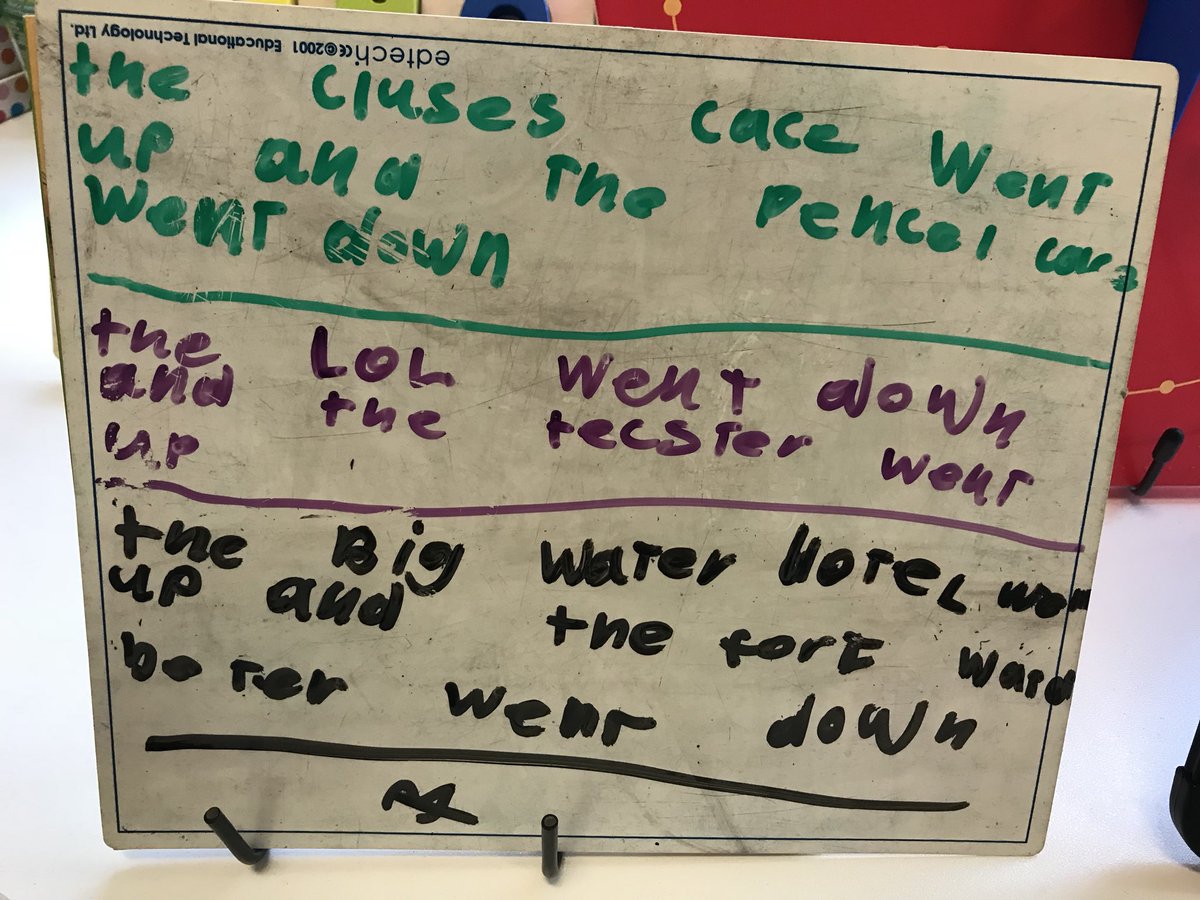 edtech ©2001 Educational Technology Ltd.
the cluses cace went
up and The Pencel
went down
the LOL went down
and the tecster went
up
the Big water Hotel
up and the fort ward
bo ter went down